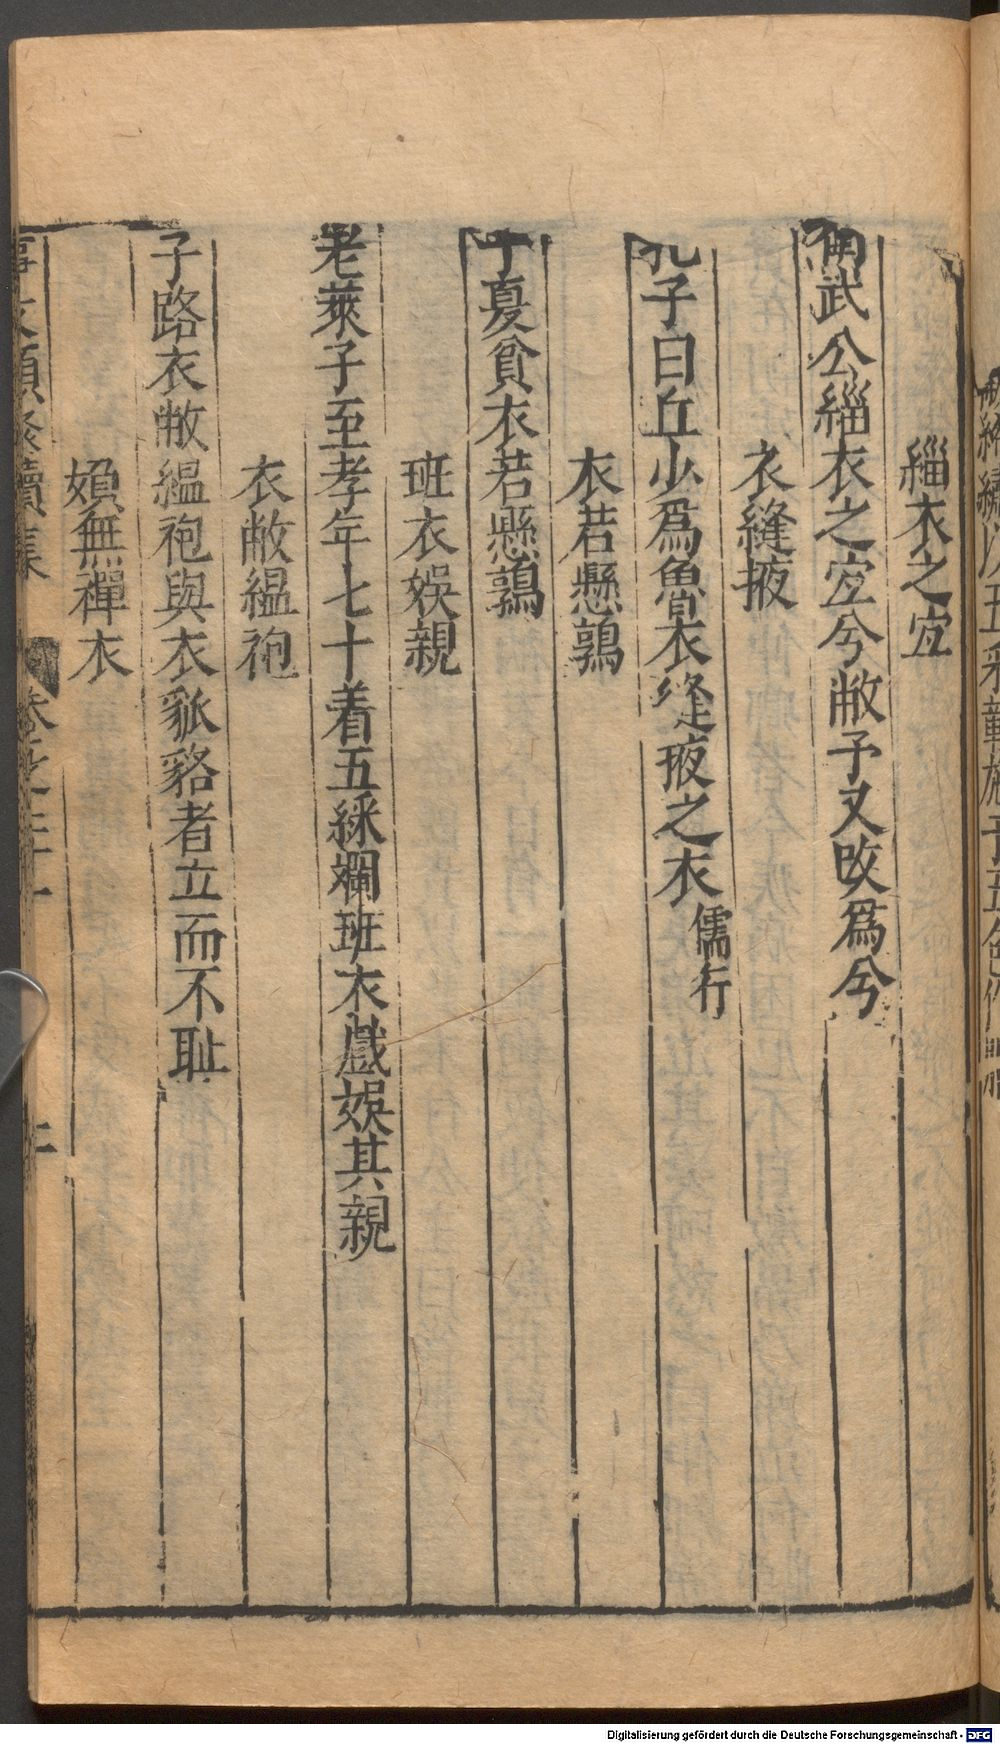 緇衣之宜
武公緇衣之宜兮敝予又改爲兮
衣縫掖
孔子曰丘少爲魯衣縫掖之衣儒行
衣若懸鶉
子夏貧衣若懸鶉
班衣娛親
老萊子至孝年七十着五綵斕班衣戲娛其親
衣敝縕袍
子路衣敝縕袍與衣狐貉者立而不恥
嬪無襌衣
事文類聚續集 卷之二十一 二
Digitalisierung gefördert durch die Deutsche Forschungsgemeinschaft - DFG